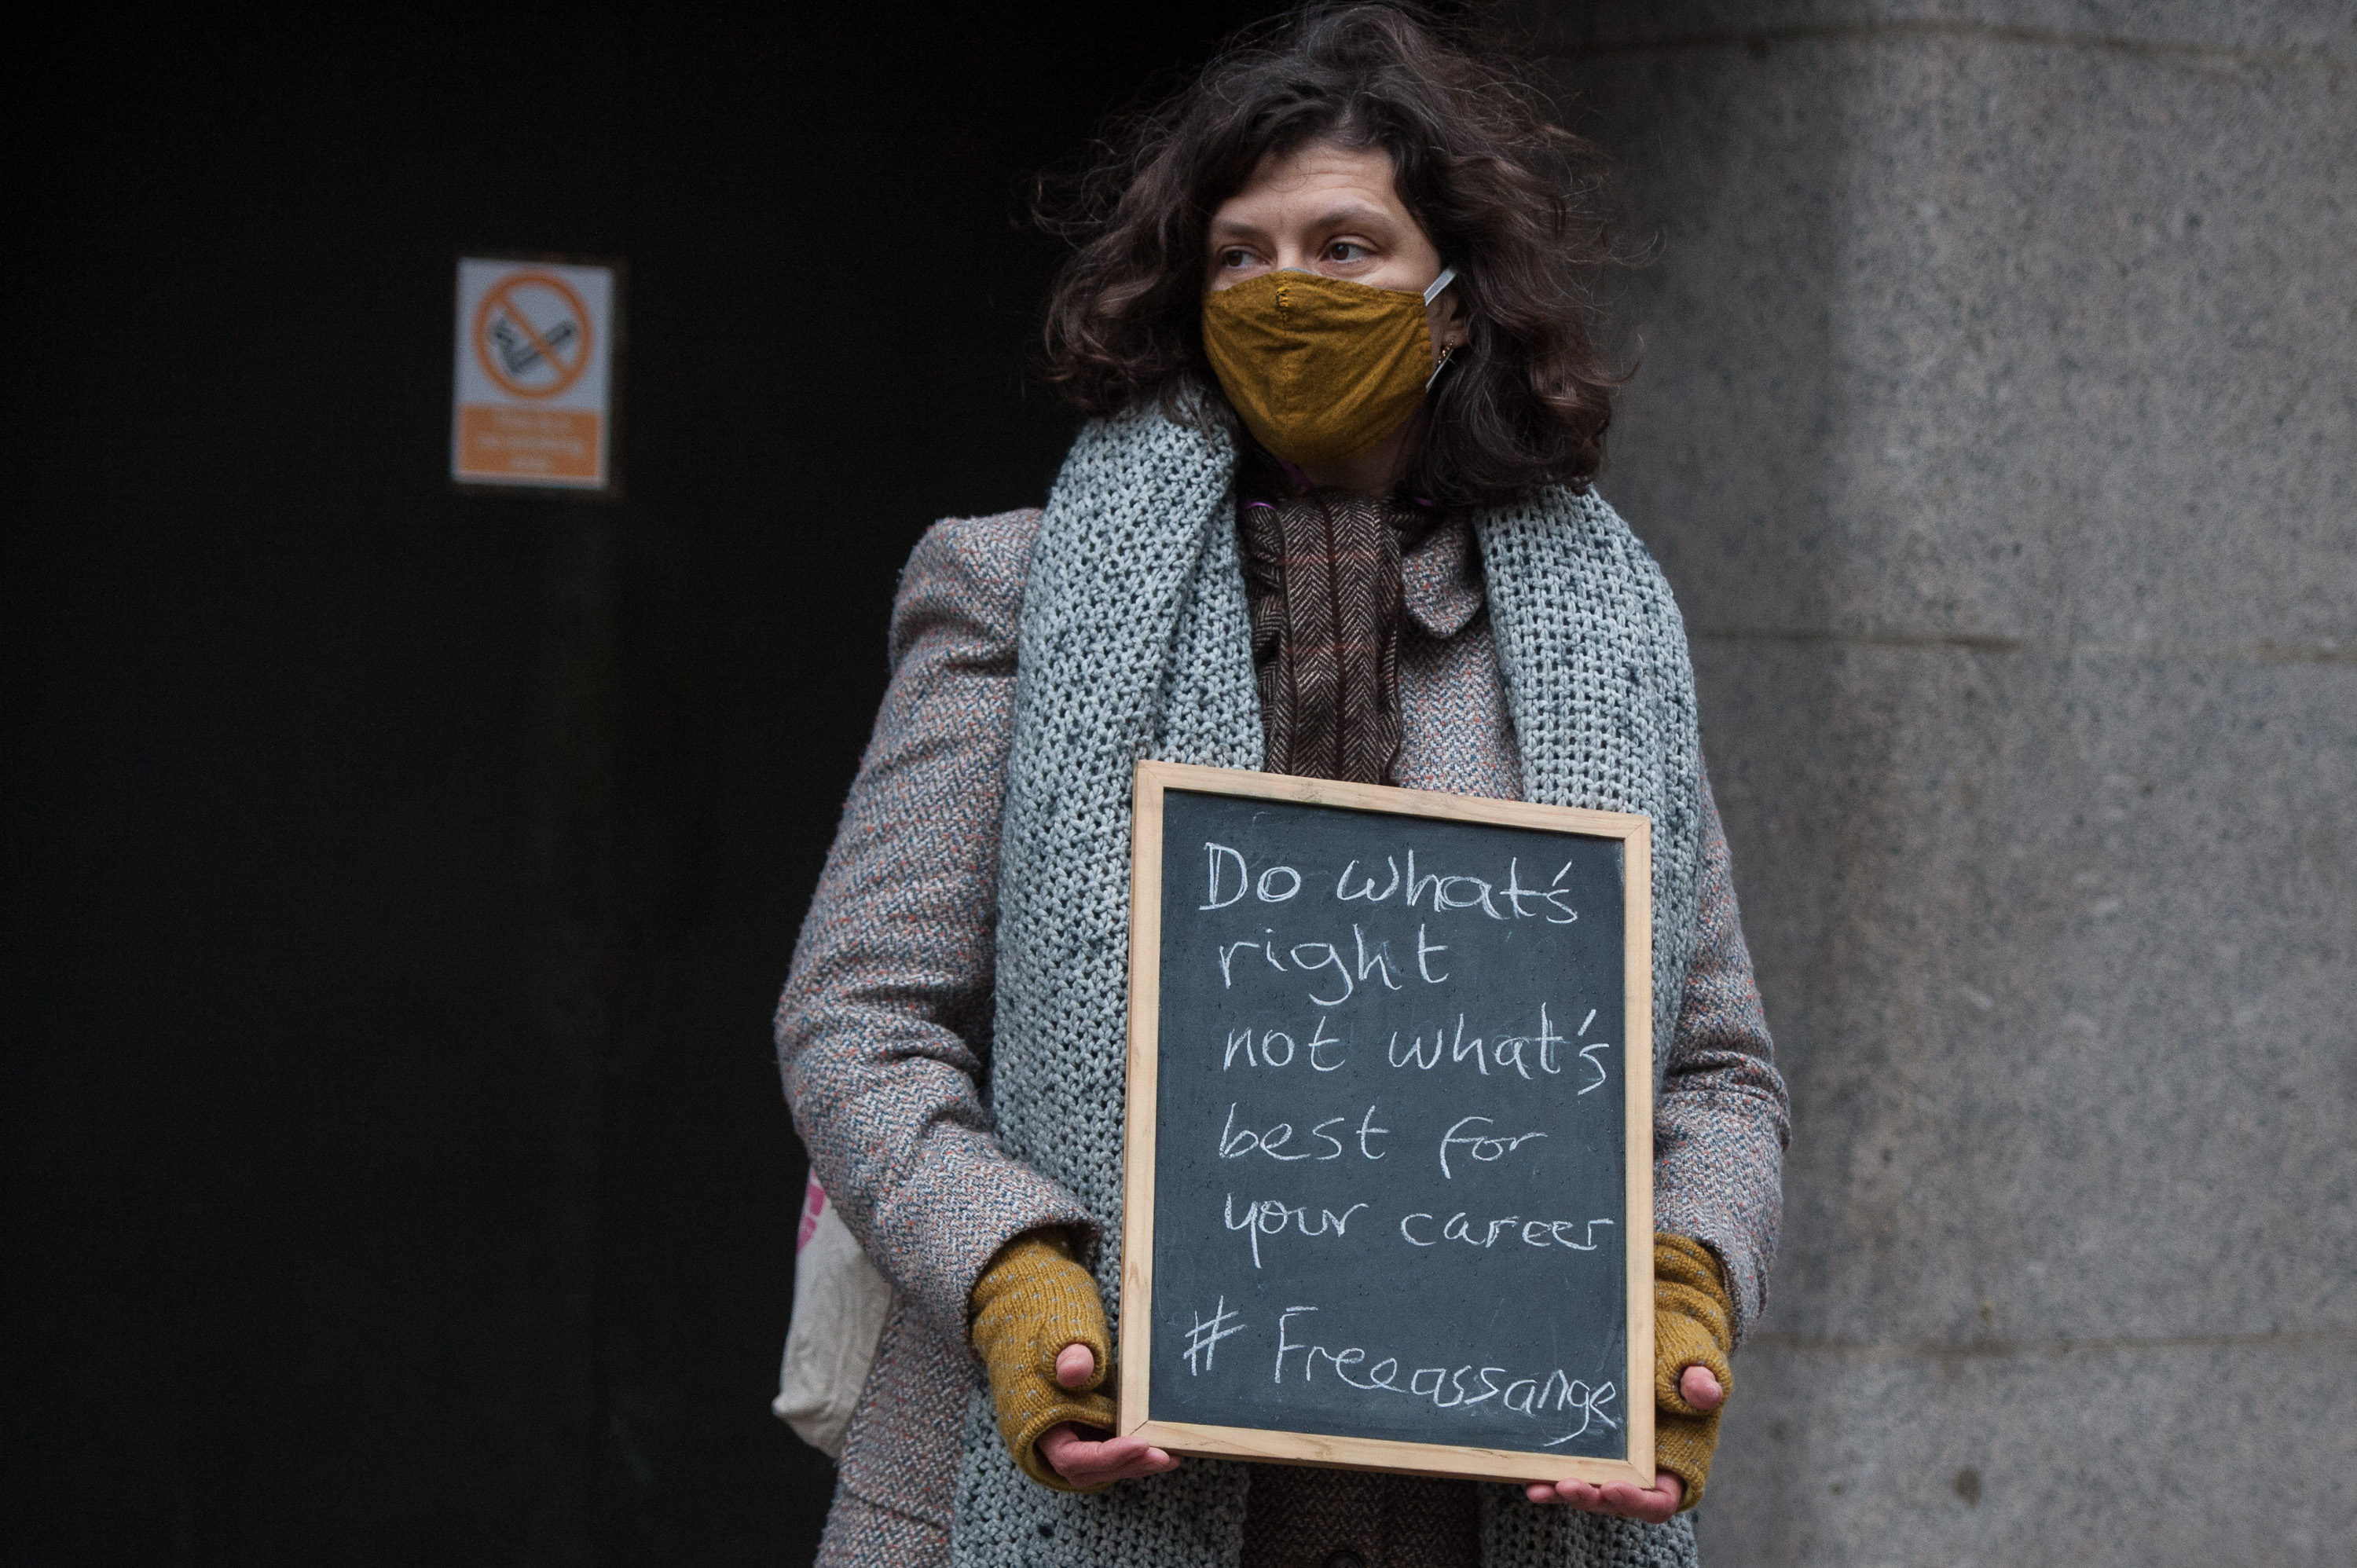 Do what's
right
not what's
best for
your career
# Freeassange